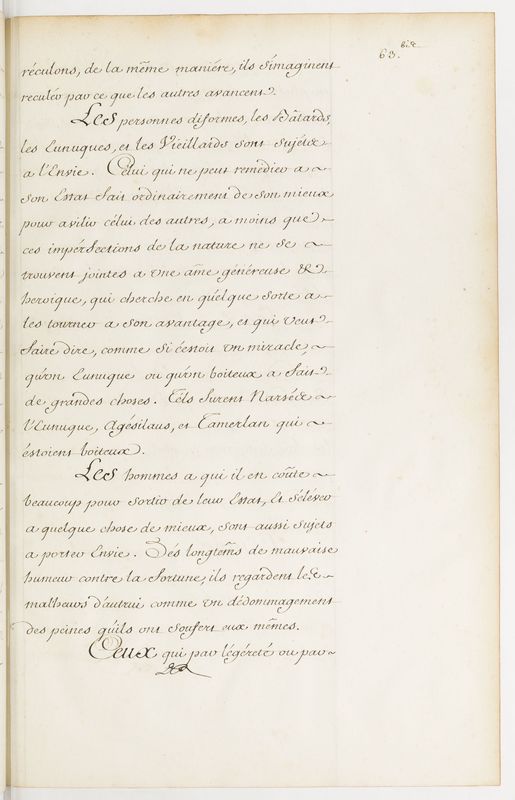 63. bis
réculons, de la même maniére, ils s'imaginent
reculer par ce que les autres avancent.
Les personnes diformes, les Bâtards,
les Eunuques, et les Vieillards sont sujéts
a l'Envie. Celui qui ne peut remédier a
son Estat fait ordinairement de son mieux
pour avilir célui des autres, a moins que
ces impérfections de la nature ne se
trouvent jointes a une ame généreuse &
heroique, qui cherche en quélque sorte a
les tourner a son avantage, et qui veut
faire dire, comme si c'éstoit un miracle,
qu'un Eunuque ou qu'un boiteux a fait
de grandes choses. Téls furent Narsés
l'Eunuque, Agésilaus, et Tamerlan qui
éstoient boiteux.
Les hommes a qui il en coûte
beaucoup pour sortir de leur Estat, et s'élever
a quelque chose de mieux, sont aussi sujets
a porter Envie. Dés longtems de mauvaise
humeur contre la fortune, ils regardent les
malheurs d'autrui comme un dédommagement
des peines qu'ils ont soufert eux mêmes.
Ceux qui par légéreté ou par